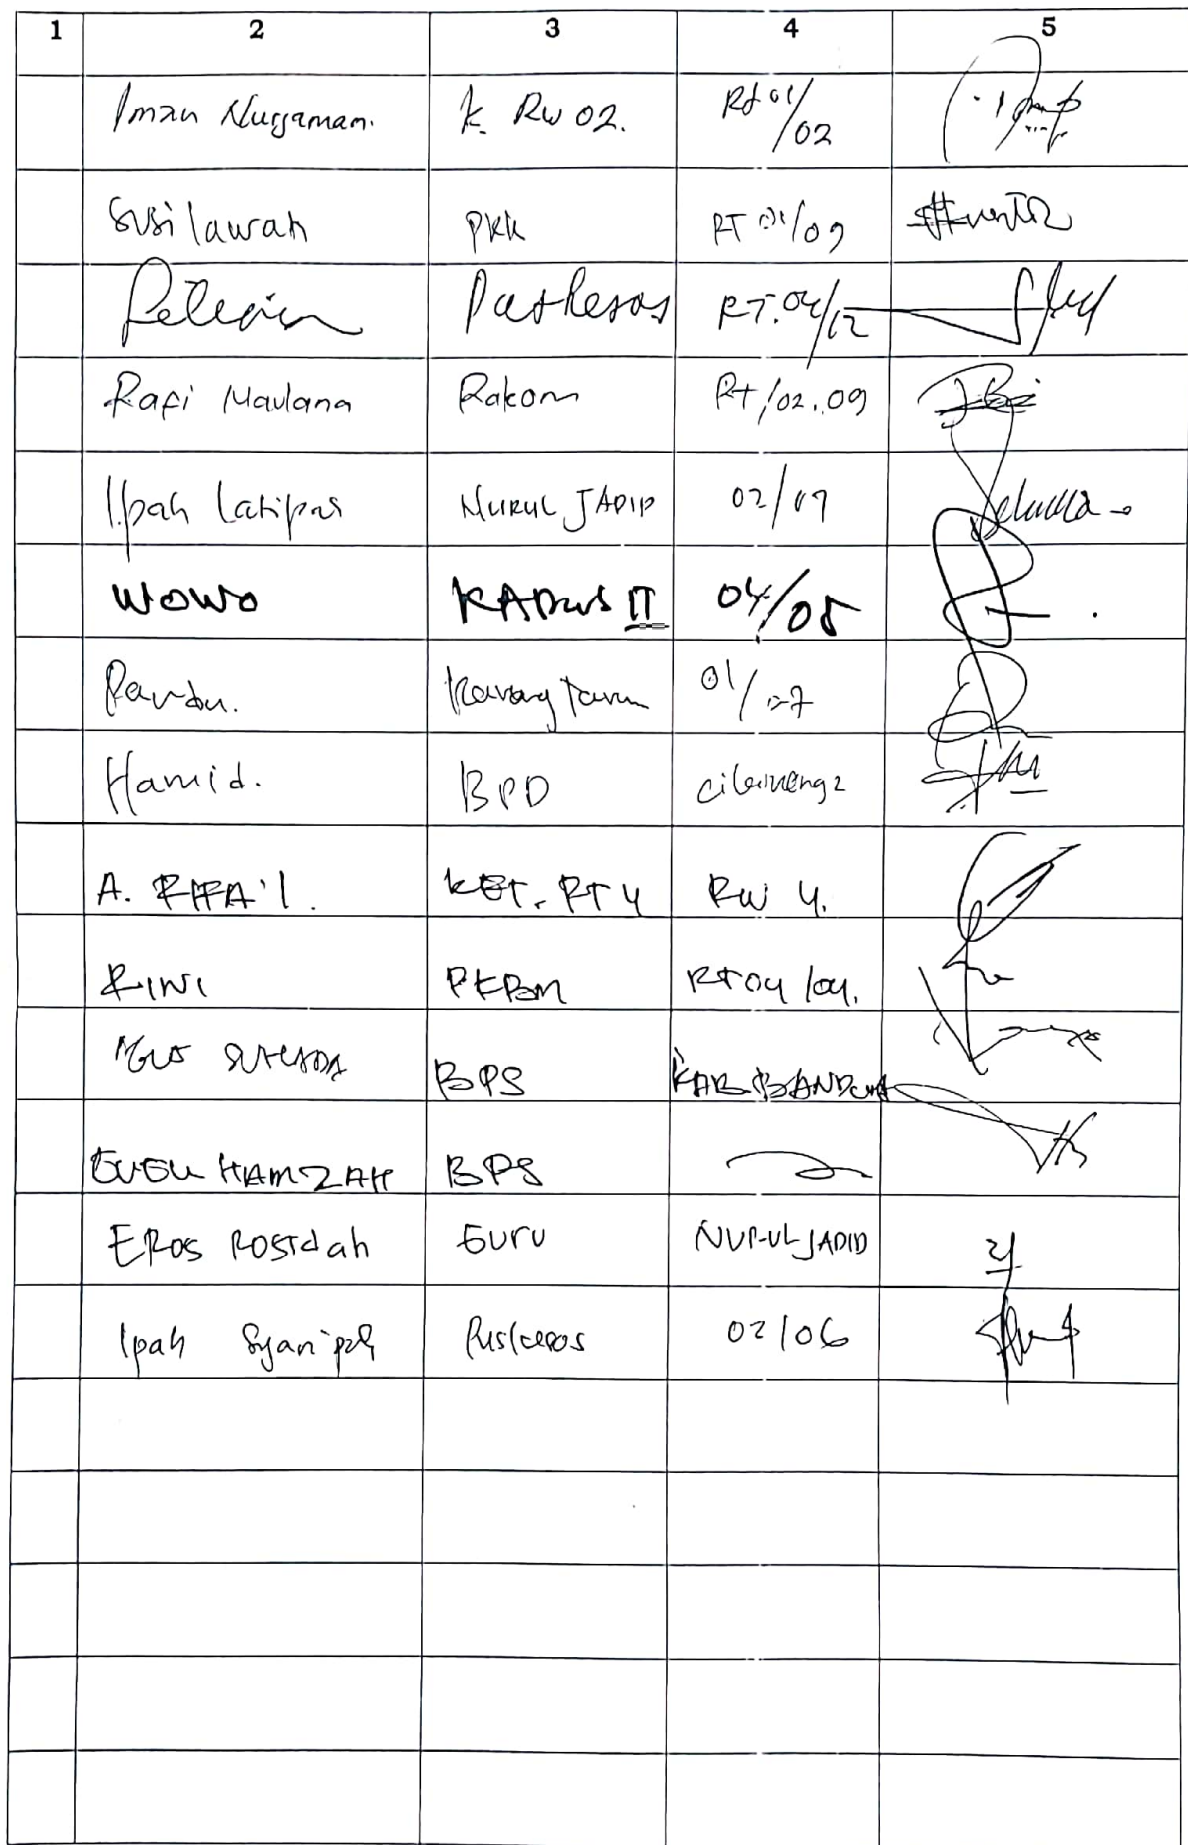 1 2 3 4 5
Iman Nurjaman. K. RW 02. Rt 01/02
Susilawati PKK RT 01/09
RT.04/12
Rafi Maulana Rakom Rt/02.09
Ipah Latipas NURUL JADID 02/07
WOWO KADUS II 04/05
Karang Taruna 01/07
Hamid. BPD
A. RIFA'I. KET. RT 4 RW 4.
RINI PKBM RT04/04.
BPS KAB BANDUNG
GUGU HAMZAH BPS
EROS ROSIDAH GURU NURUL JADID
Ipah Syaripah Puskesos 02/06